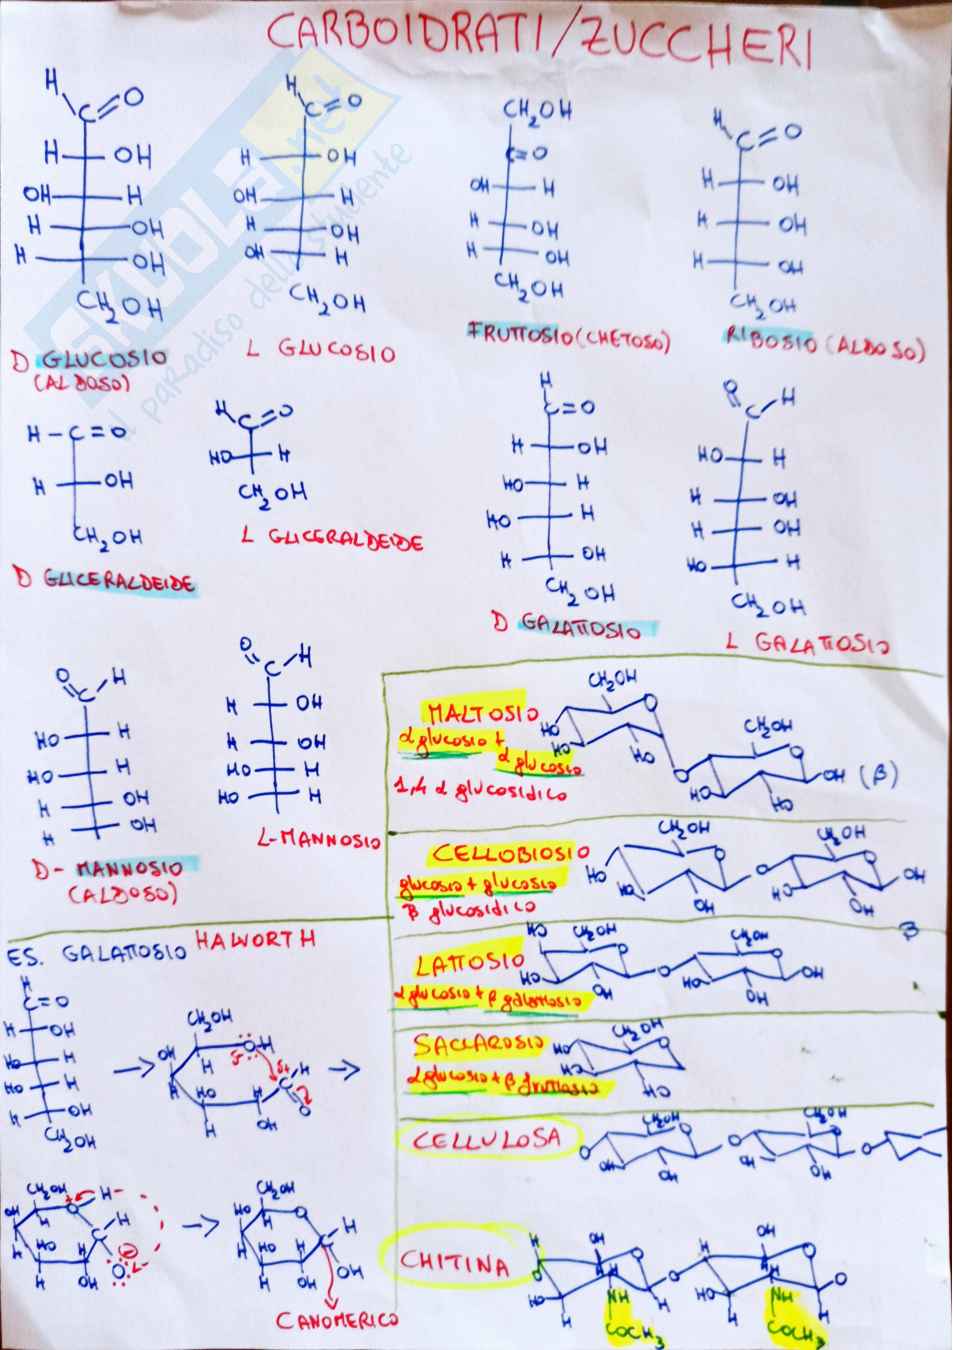 CARBOIDRATI/ZUCCHERI
H
C=O
H OH
OH H
H OH
H OH
CH2OH
D GLUCOSIO
(ALDOSO)
H
C=O
H OH
OH H
H OH
OH H
CH2OH
L GLUCOSIO
CH2OH
C=O
OH H
H OH
H OH
CH2OH
FRUTTOSIO (CHETOSO)
H
C=O
H OH
H OH
H OH
CH2OH
RIBOSIO (ALDOSO)
SKUOLA.net
il paradiso dello studente
H-C=O
H OH
CH2OH
D GLICERALDEIDE
H
C=O
HO H
CH2OH
L GLICERALDEIDE
H
C=O
H OH
HO H
HO H
H OH
CH2OH
D GALATTOSIO
O
C H
HO H
H OH
H OH
HO H
CH2OH
L GALATTOSIO
O
C H
HO H
HO H
H OH
H OH
D- MANNOSIO
(ALDOSO)
O
C H
H OH
H OH
HO H
HO H
L-MANNOSIO
MALTOSIO
α glucosio +
α glucosio
1,4 α glucosidico
CH2OH
O
HO
HO
HO
CH2OH
O
O
HO
HO
OH (β)
CELLOBIOSIO
glucosio + glucosio
β glucosidico
CH2OH
O
HO
HO
OH
O
CH2OH
O
HO
OH
OH
β
LATTOSIO
α glucosio + β galattosio
HO
CH2OH
O
HO
OH
O
CH2OH
O
HO
OH
OH
SACCAROSIO
α glucosio + β fruttosio
CH2OH
O
HO
HO
HO
CELLULOSA
CH2OH
O
O
OH
OH
O
CH2OH
O
OH
OH
O
CHITINA
H
OH
O
O
HO
H
H
H
NH
COCH3
H
O
H
OH
O
HO
H
H
H
NH
COCH3
O
ES. GALATTOSIO HAWORTH
H
C=O
H OH
HO H
HO H
H OH
CH2OH
CH2OH
OH
H
H
HO
H
H
OH
OH
δ-
δ+
C
H
O
CH2OH
O
H
H
H
HO
H
H
OH
C
H
O
CH2OH
HO
O
H
H
HO
H
H
OH
C
H
OH
CANOMERICO